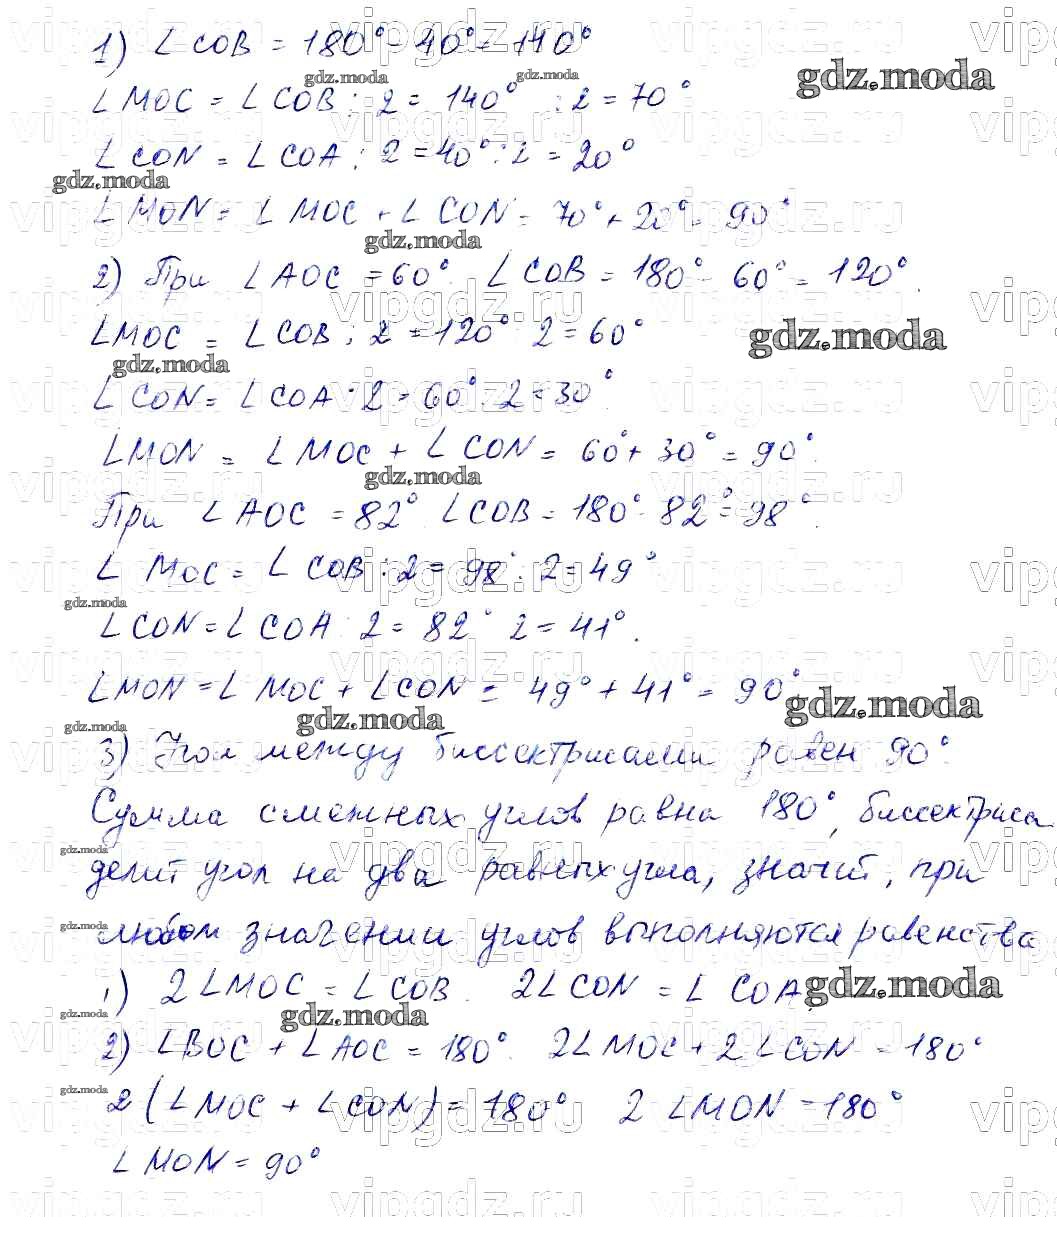 1) ∠COB = 180° - 40° = 140°
∠MOC = ∠COB : 2 = 140° : 2 = 70°
∠CON = ∠COA : 2 = 40° : 2 = 20°
∠MON = ∠MOC + ∠CON = 70° + 20° = 90°
2) При ∠AOC = 60° ∠COB = 180° - 60° = 120°.
∠MOC = ∠COB : 2 = 120° : 2 = 60°
∠CON = ∠COA : 2 = 60° : 2 = 30°.
∠MON = ∠MOC + ∠CON = 60° + 30° = 90°.
При ∠AOC = 82° ∠COB = 180° - 82° = 98°.
∠MOC = ∠COB : 2 = 98° : 2 = 49°
∠CON = ∠COA : 2 = 82° : 2 = 41°.
∠MON = ∠MOC + ∠CON = 49° + 41° = 90°
3) Угол между биссектрисами равен 90°.
Сумма смежных углов равна 180°, биссектриса
делит угол на два равных угла, значит, при
любом значении углов выполняются равенства
1) 2∠MOC = ∠COB. 2∠CON = ∠COA
2) ∠BOC + ∠AOC = 180°. 2∠MOC + 2∠CON = 180°
2(∠MOC + ∠CON) = 180° 2∠MON = 180°
∠MON = 90°
gdz.moda
vipgdz.ru